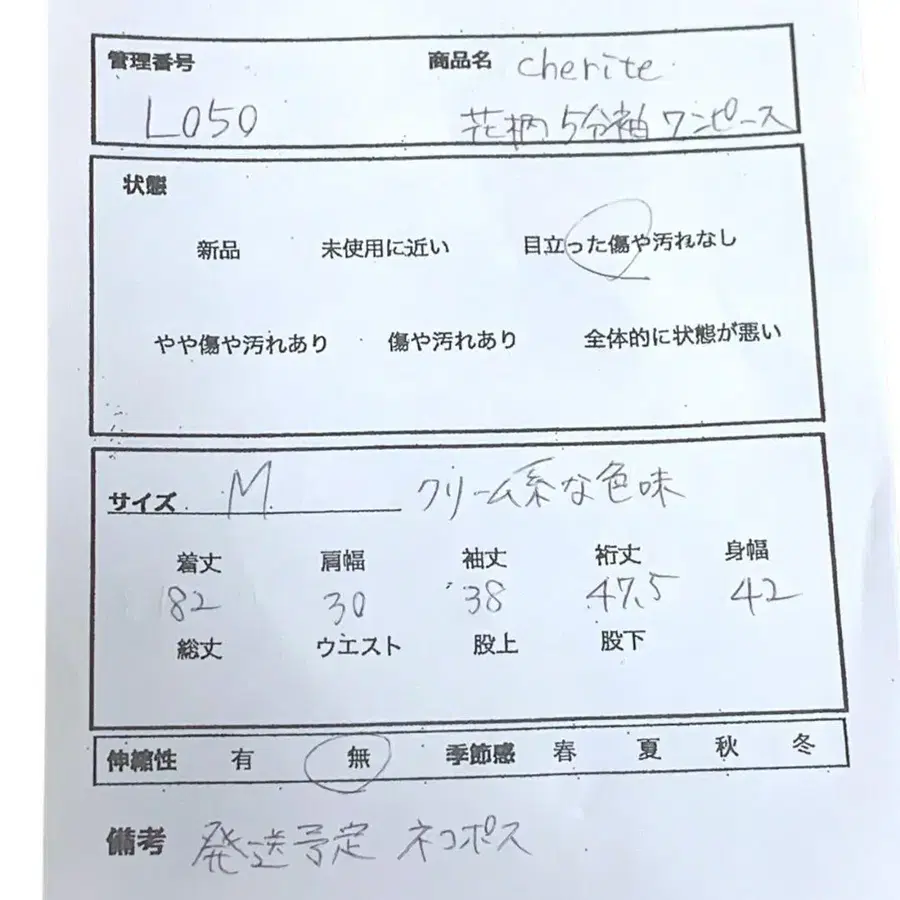 管理番号 商品名 cherite
L050 花柄5分袖ワンピース
状態
新品 未使用に近い 目立った傷や汚れなし
やや傷や汚れあり 傷や汚れあり 全体的に状態が悪い
サイズ M クリーム系な色味
着丈 肩幅 袖丈 裄丈 身幅
82 30 38 47.5 42
総丈 ウエスト 股上 股下
伸縮性 有 無 季節感 春 夏 秋 冬
備考 発送予定 ネコポス